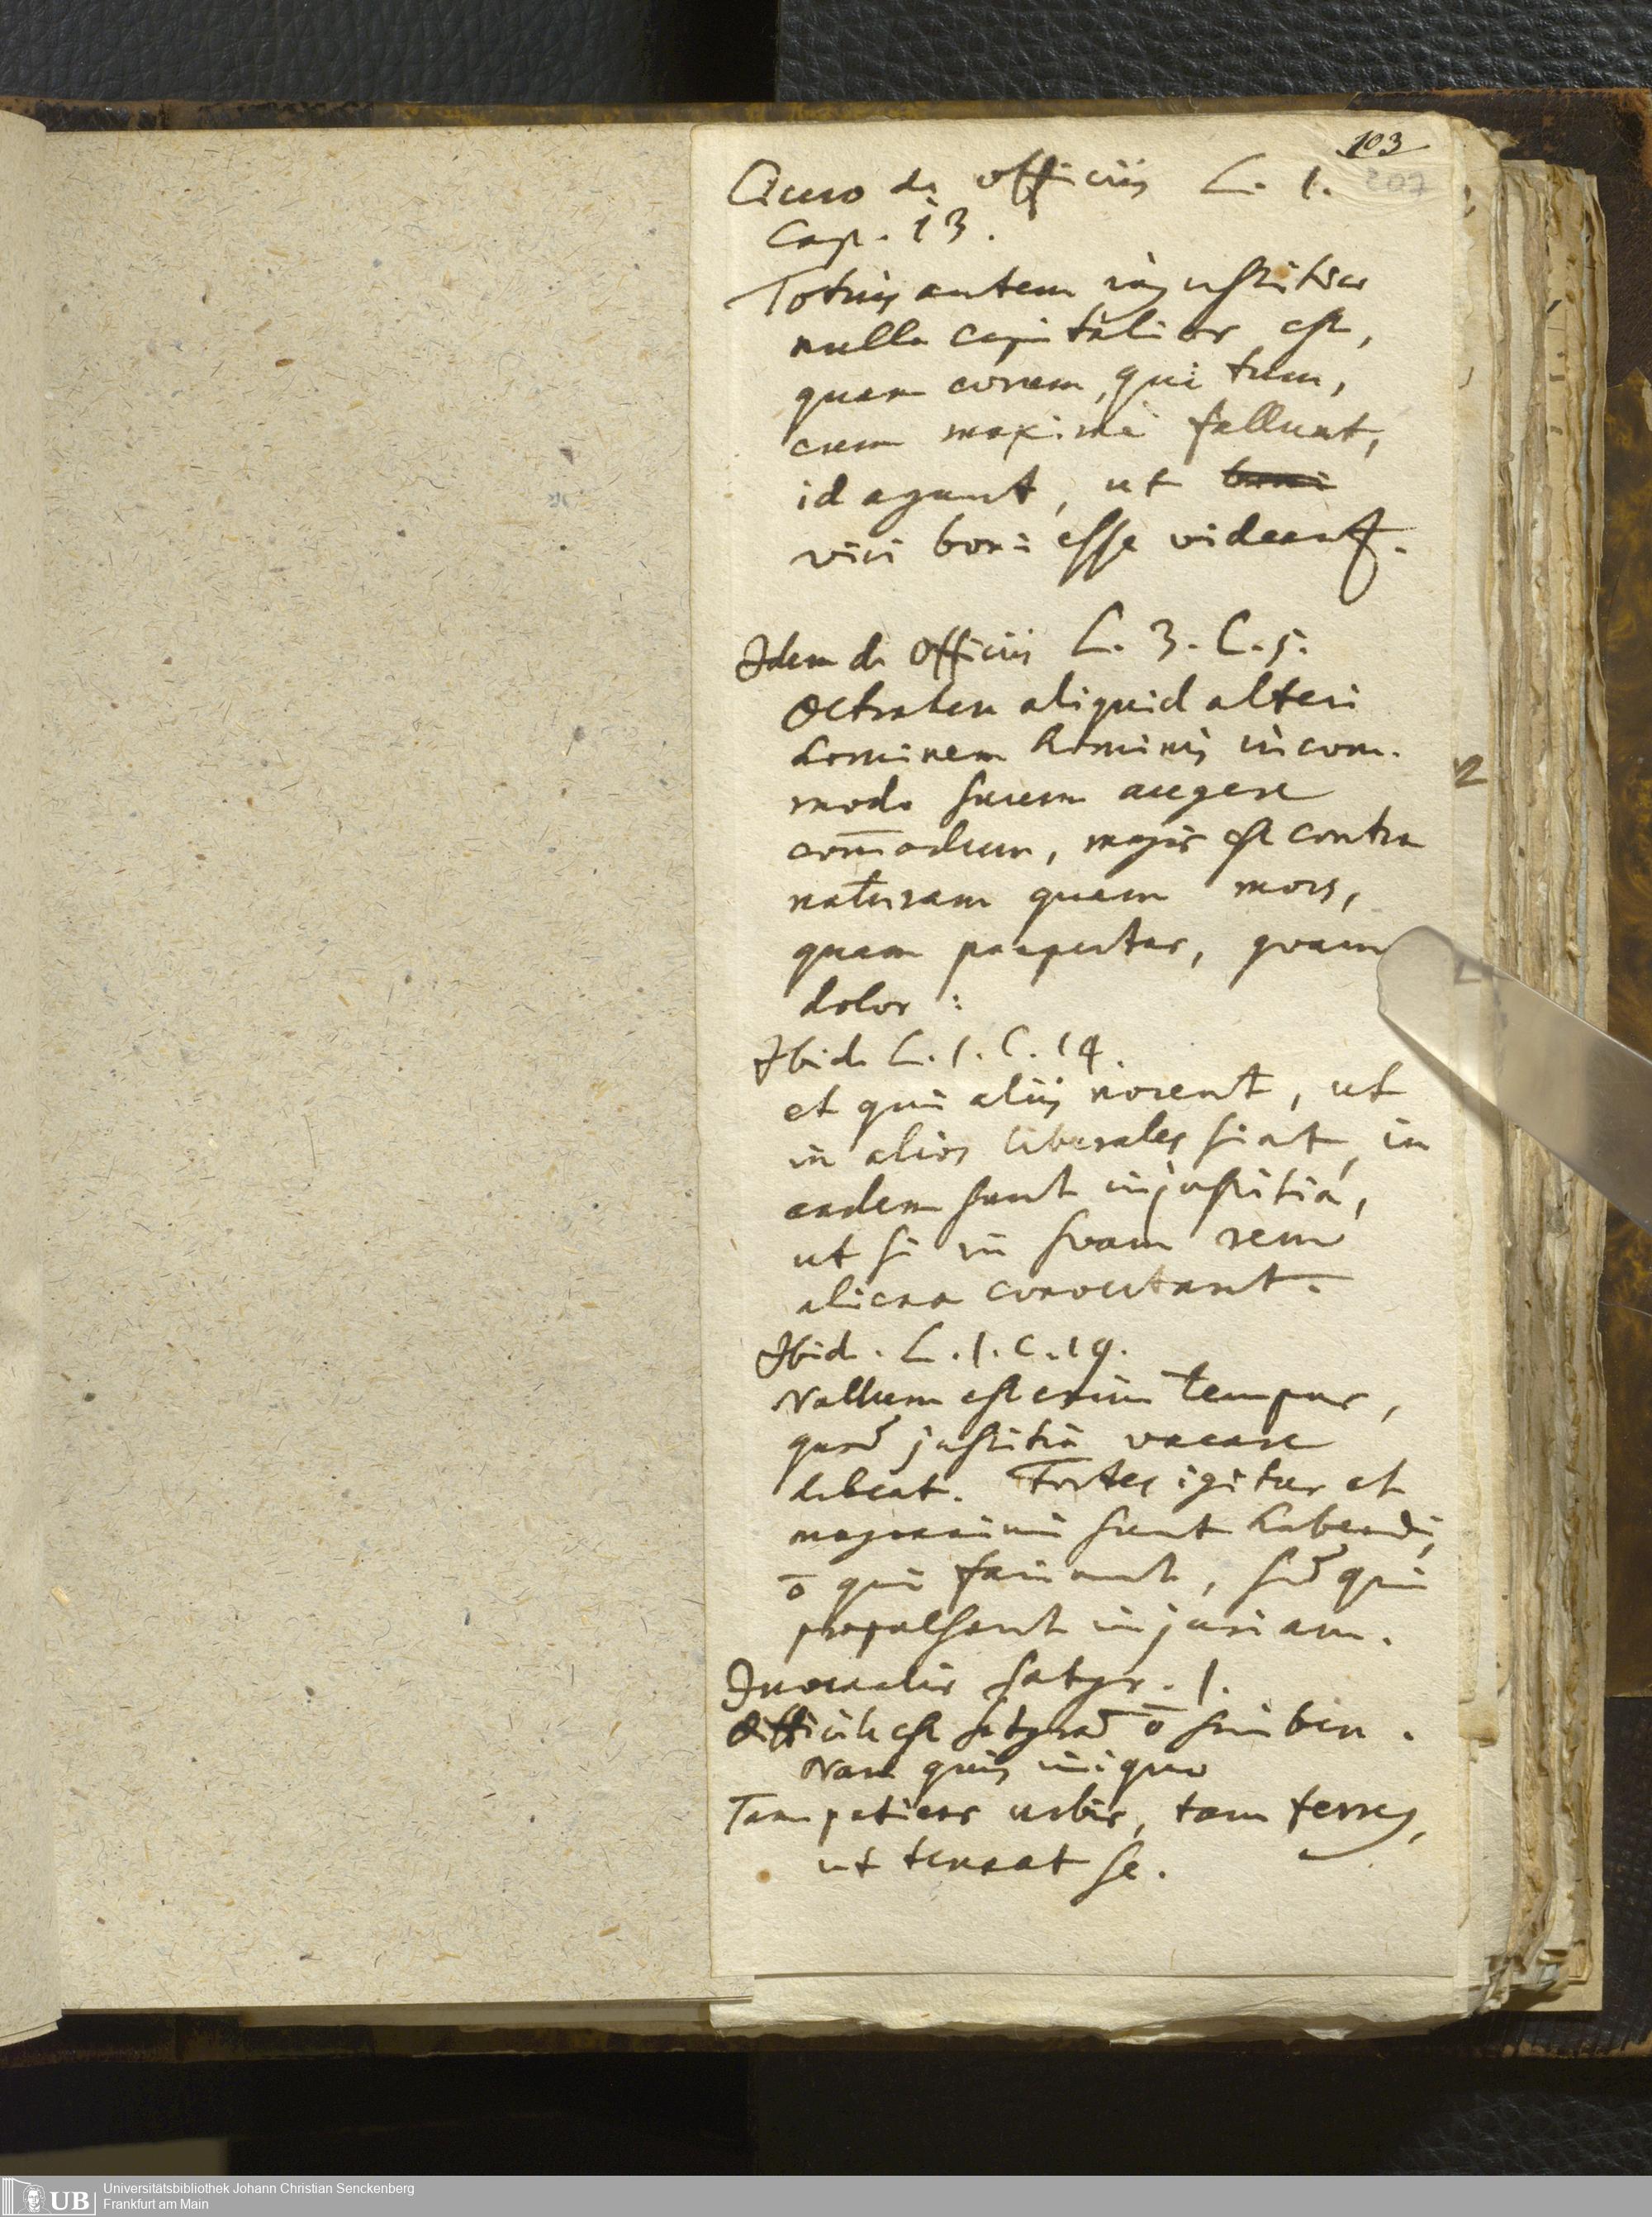 103
207
Cicero de officiis L. 1.
Cap. 13.
Totius autem injustitiae
nulla capitalior est,
quam eorum, qui tum,
cum maxime fallunt,
id agunt, ut boni
viri boni esse videantr.
Idem de Officiis L. 3. C. 5.
Detrahere aliquid alteri
hominem hominis incom-
modo suum augere
com̄odum, magis est contra
naturam quam mors,
quam paupertas, quam
dolor:
Ibid. L. 1. C. 14.
et qui aliis nocent, ut
in alios liberales sint, in
eadem sunt injustitiâ,
ut si in suam rem
aliena convertant.
Ibid. L. 1. C. 19.
Nullum est enim tempus,
quod justitiâ vacare
debeat. Fortes igitur et
magnanimi sunt habendi,
ō qui faciunt, sed qui
propulsant injuriam.
Juvenalis Satyr. 1.
Difficile est satyram ō scribere.
Nam quis iniquae
Tam patiens urbis, tam ferreus,
ut teneat se.
UB
Universitätsbibliothek Johann Christian Senckenberg
Frankfurt am Main